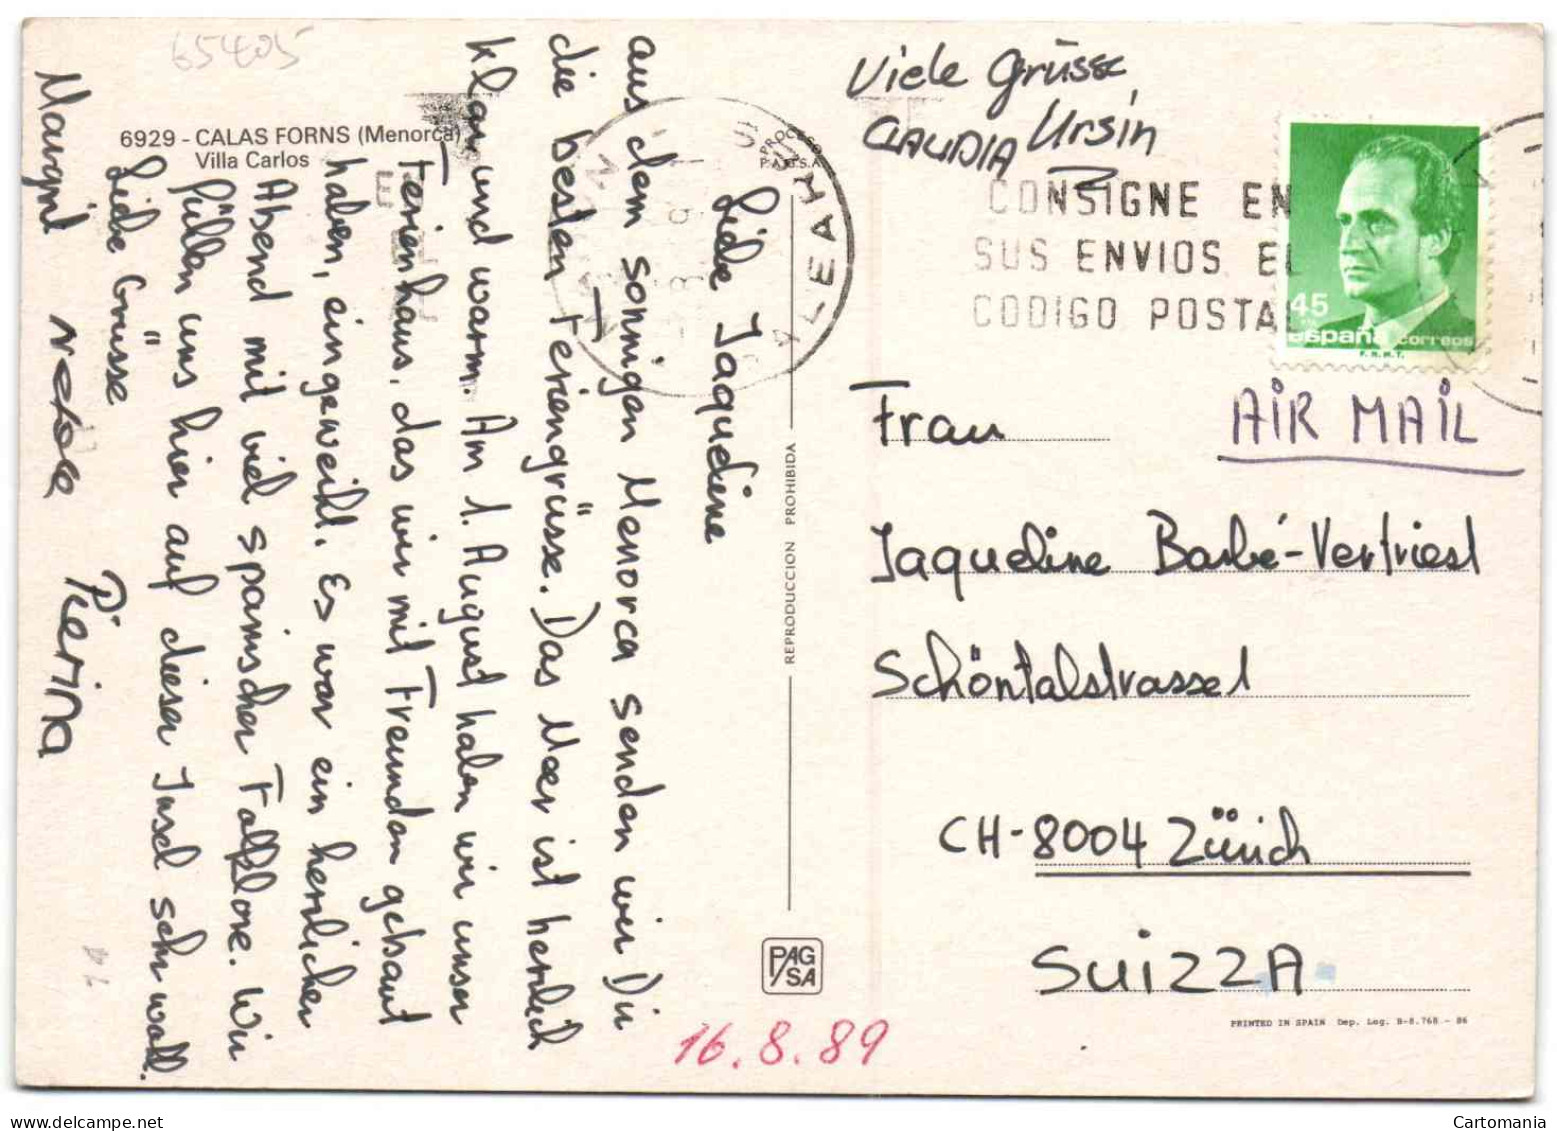 65405
6929 - CALAS FORNS (Menorca)
Villa Carlos
PROCESO
P.A.G.S.A.
Liebe Jaqueline
aus dem sonnigen Menorca senden wir Dir
die besten Feriengrüsse. Das Meer ist herrlich
klar und warm. Am 1. August haben wir unser
Ferienhaus, das wir mit Freunden gebaut
haben, eingeweiht. Es war ein herrlicher
Abend mit viel spanischer Folklore. Wir
fühlen uns hier auf dieser Insel sehr wohl.
Liebe Grüsse
Margrit Pierina
Viele Grüsse
Ursin
CLAUDIA
BALEARES
CONSIGNE EN
SUS ENVIOS EL
CODIGO POSTA
45
españa correos
AIR MAIL
Frau
Jaqueline Barbé-Vertriest
Schöntalstrasse 1
CH-8004 Zürich
SUIZZA
REPRODUCCION PROHIBIDA
PAG
SA
16.8.89
PRINTED IN SPAIN Dep. Leg. B-8.768 - 86
Cartomania